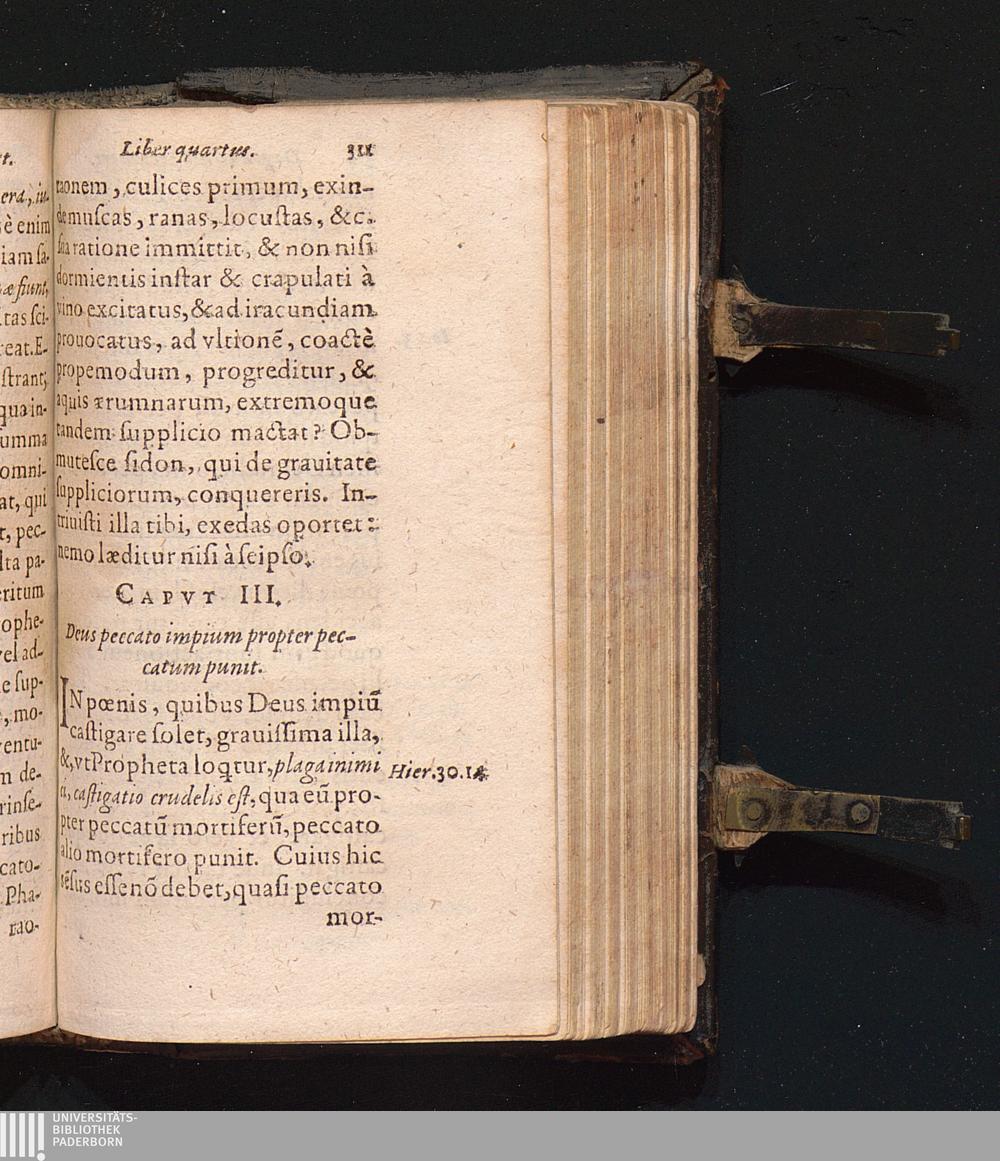 Liber quartus. 311
raonem, culices primum, exin-
de muſcas, ranas, locuſtas, &c.
ſua ratione immittit, & non niſi
dormientis inſtar & crapulati à
vino excitatus, & ad iracundiam
prouocatus, ad vltionẽ, coactè
propemodum, progreditur, &
aquis ærumnarum, extremoque
tandem ſupplicio mactat? Ob-
muteſce ſidon, qui de grauitate
ſuppliciorum, conquereris. In-
triuiſti illa tibi, exedas oportet:
nemo læditur niſi à ſeipſo.
CAPVT III.
Deus peccato impium propter pec-
catum punit.
IN pœnis, quibus Deus impiũ
caſtigare ſolet, grauiſſima illa,
&, vt Propheta loqtur, plaga inimi
ci, caſtigatio crudelis eſt, qua eũ pro-
pter peccatũ mortiferũ, peccato
alio mortifero punit. Cuius hic
ſẽſus eſſe nõ debet, quaſi peccato
mor-
Hier. 30. 14
t.
era, iu-
ſè enim
iam ſa-
æ fiunt,
tas ſci-
eat. E-
ſtrant;
qua in-
umma
omni-
at, qui
t, pec-
lta pa-
eritum
ophe-
vel ad-
e ſup-
, mo-
ventu-
m de-
rinſe-
ribus
cato-
Pha-
rao-
UNIVERSITÄTS-
BIBLIOTHEK
PADERBORN